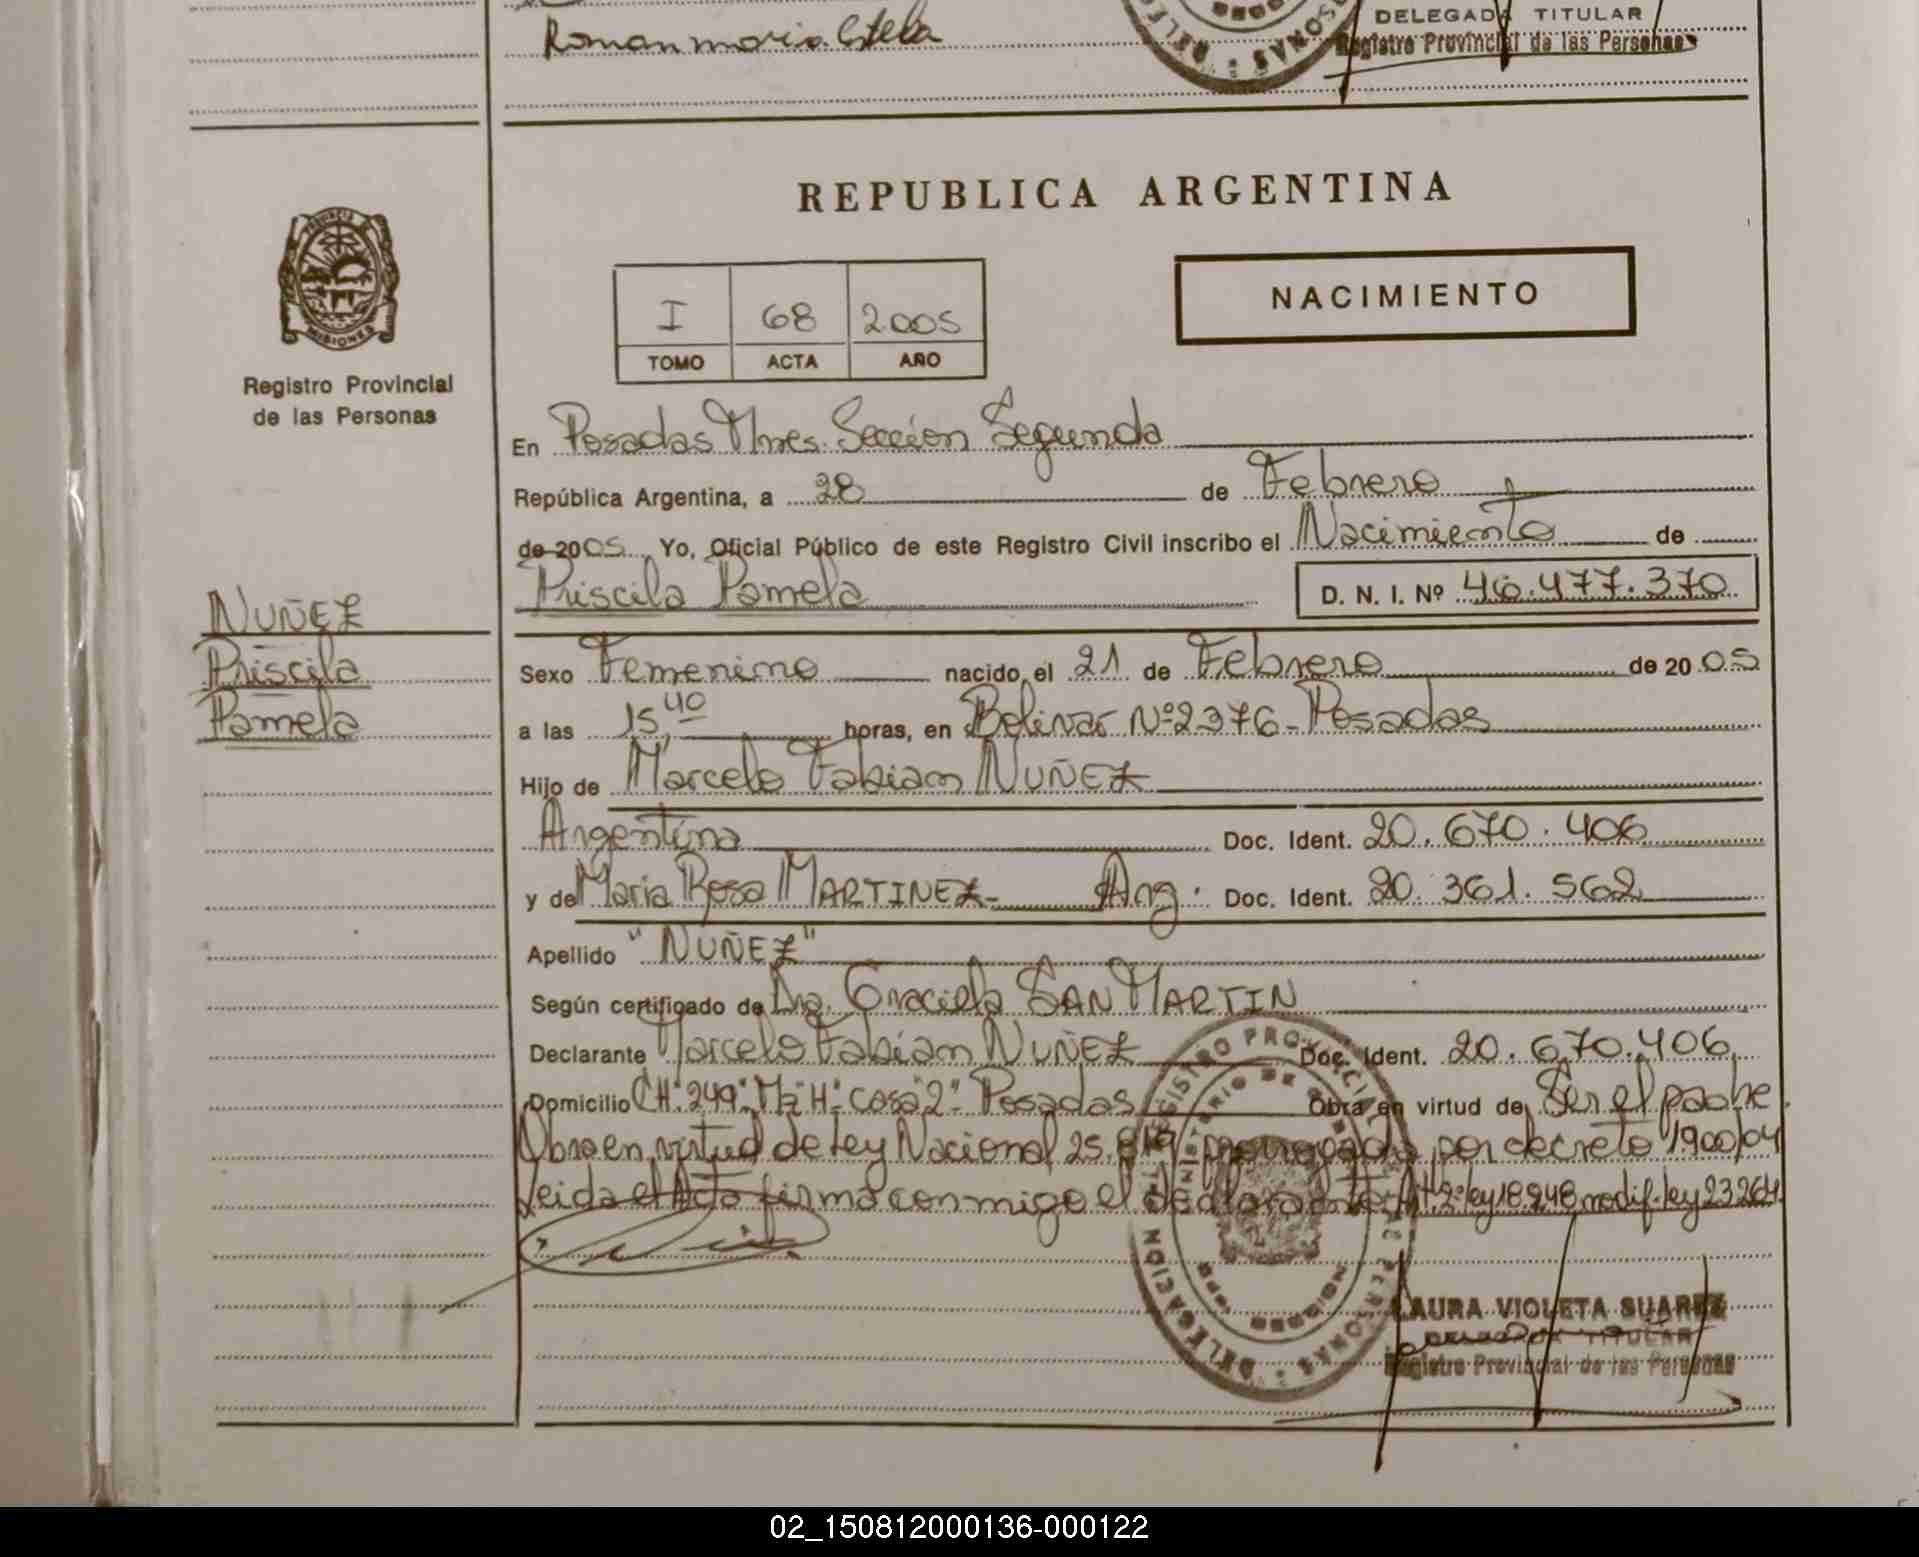 Roman maria Estela
DELEGADA TITULAR
Registro Provincial de las Personas
REPUBLICA ARGENTINA
NACIMIENTO
I 68 2005
TOMO ACTA AÑO
MISIONES
Registro Provincial
de las Personas
En Posadas Mnes. Sección Segunda
República Argentina, a 28 de Febrero
de 2005 Yo, Oficial Público de este Registro Civil inscribo el Nacimiento de
Priscila Pamela D. N. I. Nº 46.477.370
NUÑEZ
Priscila
Pamela
Sexo Femenino nacido el 21 de Febrero de 2005
a las 15,40 horas, en Bolivar Nº 2376 - Posadas
Hijo de Marcelo Fabian NUÑEZ
Argentina Doc. Ident. 20.670.406
y de Maria Rosa MARTINEZ- Arg. Doc. Ident. 20.361.562
Apellido "NUÑEZ"
Según certificado de Dra. Graciela SAN MARTIN
Declarante Marcelo Fabian NUÑEZ Doc. Ident. 20.670.406
Domicilio CH "249" Mz "H" Casa "2" Posadas Obra en virtud de Ser el padre
Obra en virtud de Ley Nacional 25.819 prorrogada por decreto 1900/04
Leida el Acta firma conmigo el declarante Art. 2º ley 18.248 modif. ley 23264.
LAURA VIOLETA SUAREZ
TITULAR
Registro Provincial de las Personas
02_150812000136-000122